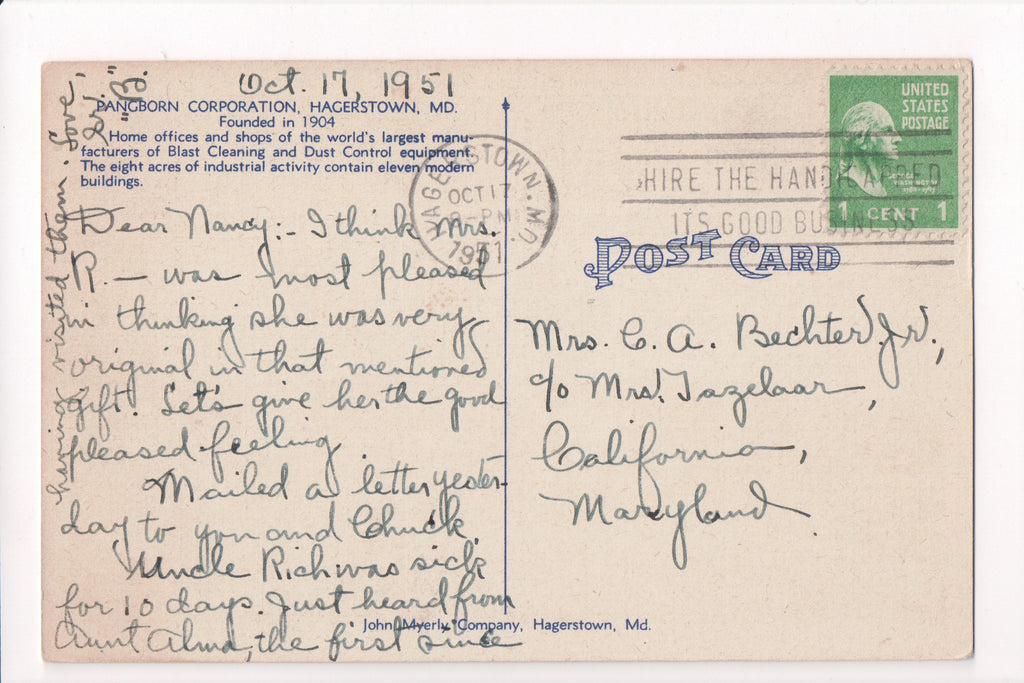 Oct. 17, 1951
PANGBORN CORPORATION, HAGERSTOWN, MD.
Founded in 1904
Home offices and shops of the world's largest manu-
facturers of Blast Cleaning and Dust Control equipment.
The eight acres of industrial activity contain eleven modern
buildings.
Dear Nancy:- I think Mrs.
R. — was most pleased
in thinking she was very
original in that mentioned
gift. Let's give her the good
pleased feeling
Mailed a letter yester-
day to you and Chuck.
Uncle Rich was sick
for 10 days. Just heard from
Aunt Alma, the first since
having visited them. Love,
"B."
HAGERSTOWN, MD.
OCT 17
PM
1951
HIRE THE HANDICAPPED
ITS GOOD BUSINESS
UNITED
STATES
POSTAGE
GEORGE
WASHINGTON
1 CENT 1
POST CARD
Mrs. C. A. Bechter, Jr.,
c/o Mrs. Tazelaar,
California,
Maryland
John Myerly Company, Hagerstown, Md.